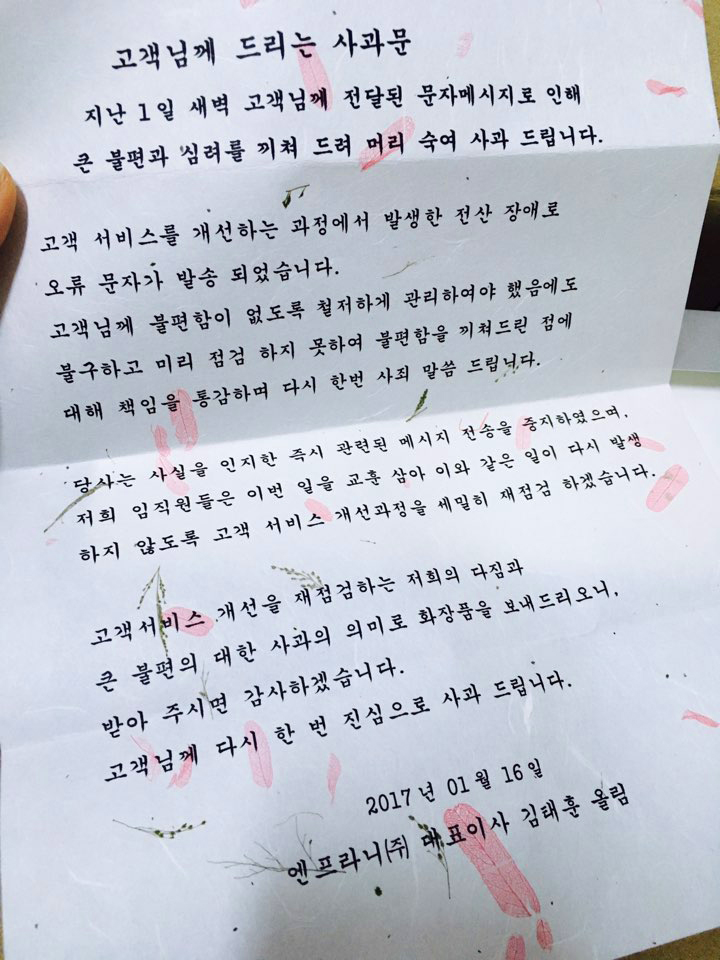 고객님께 드리는 사과문
지난 1일 새벽 고객님께 전달된 문자메시지로 인해
큰 불편과 심려를 끼쳐 드려 머리 숙여 사과 드립니다.
고객 서비스를 개선하는 과정에서 발생한 전산 장애로
오류 문자가 발송 되었습니다.
고객님께 불편함이 없도록 철저하게 관리하여야 했음에도
불구하고 미리 점검 하지 못하여 불편함을 끼쳐드린 점에
대해 책임을 통감하며 다시 한번 사죄 말씀 드립니다.
당사는 사실을 인지한 즉시 관련된 메시지 전송을 중지하였으며,
저희 임직원들은 이번 일을 교훈 삼아 이와 같은 일이 다시 발생
하지 않도록 고객 서비스 개선과정을 세밀히 재점검 하겠습니다.
고객서비스 개선을 재점검하는 저희의 다짐과
큰 불편의 대한 사과의 의미로 화장품을 보내드리오니,
받아 주시면 감사하겠습니다.
고객님께 다시 한 번 진심으로 사과 드립니다.
2017년 01월 16일
엔프라니(주) 대표이사 김태훈 올림